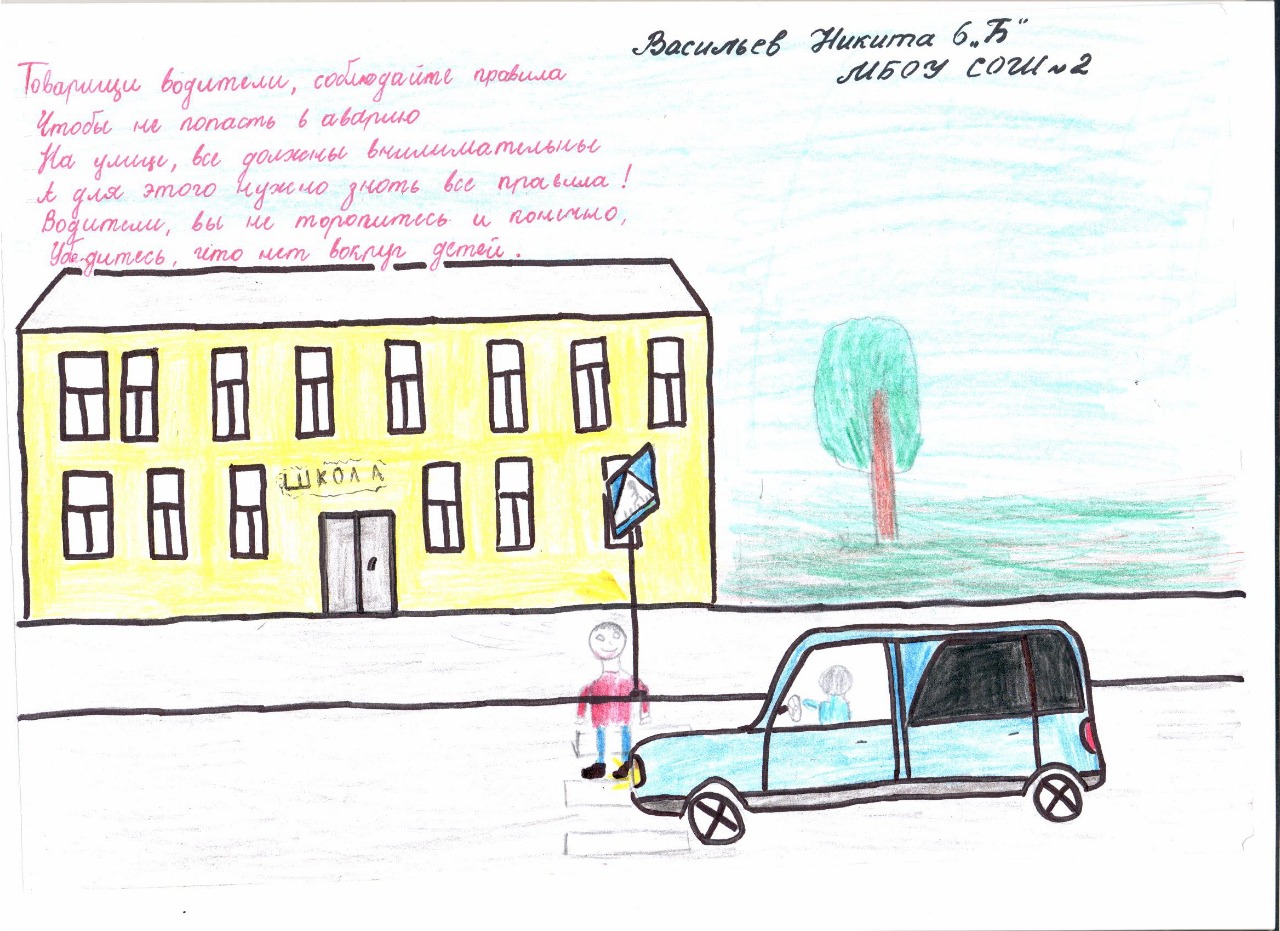 Васильев Никита 6 „Б"
МБОУ СОШ №2
Товарищи водители, соблюдайте правила
Чтобы не попасть в аварию
На улице, все должны внилимательны
А для этого нужно знать все правила!
Водители, вы не торопитесь и конечно,
Убедитесь, что нет вокруг детей.
ШКОЛА